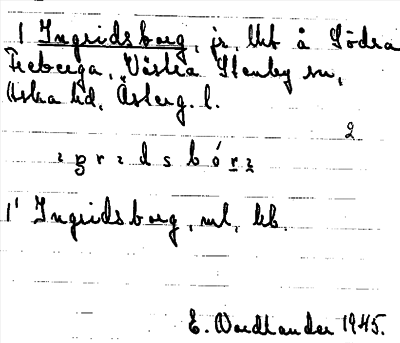 1 Ingridsborg, jr, lht å Södra
Freberga, Västra Stenby sn,
Aska hd, Österg. l.
2
ɪ g r ɪ d s b ó r ɡ
1' Ingridsborg, ml, kb.
E. Wadlander 1945.